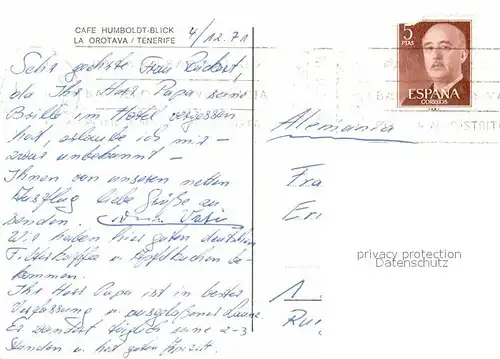 CAFE HUMBOLDT-BLICK
LA OROTAVA / TENERIFE
4/12.71
5
PTAS
ESPAÑA
CORREOS
Sehr geehrte Frau Rückert,
da Ihr Herr Papa seine
Brille im Hotel vergessen
hat, erlaube ich mir –
zwar unbekannt –
Ihnen von unserem netten
Ausflug liebe Grüße zu
senden.
Wir haben hier guten deutschen
Filterkaffee u Apfelkuchen be-
kommen.
Ihr Herr Papa ist in bester
Verfassung u ausgelassener Laune.
Er wandert täglich seine 2-3
Stunden u hat guten Appetit.
Alemania
Fra
privacy protection
Datenschutz